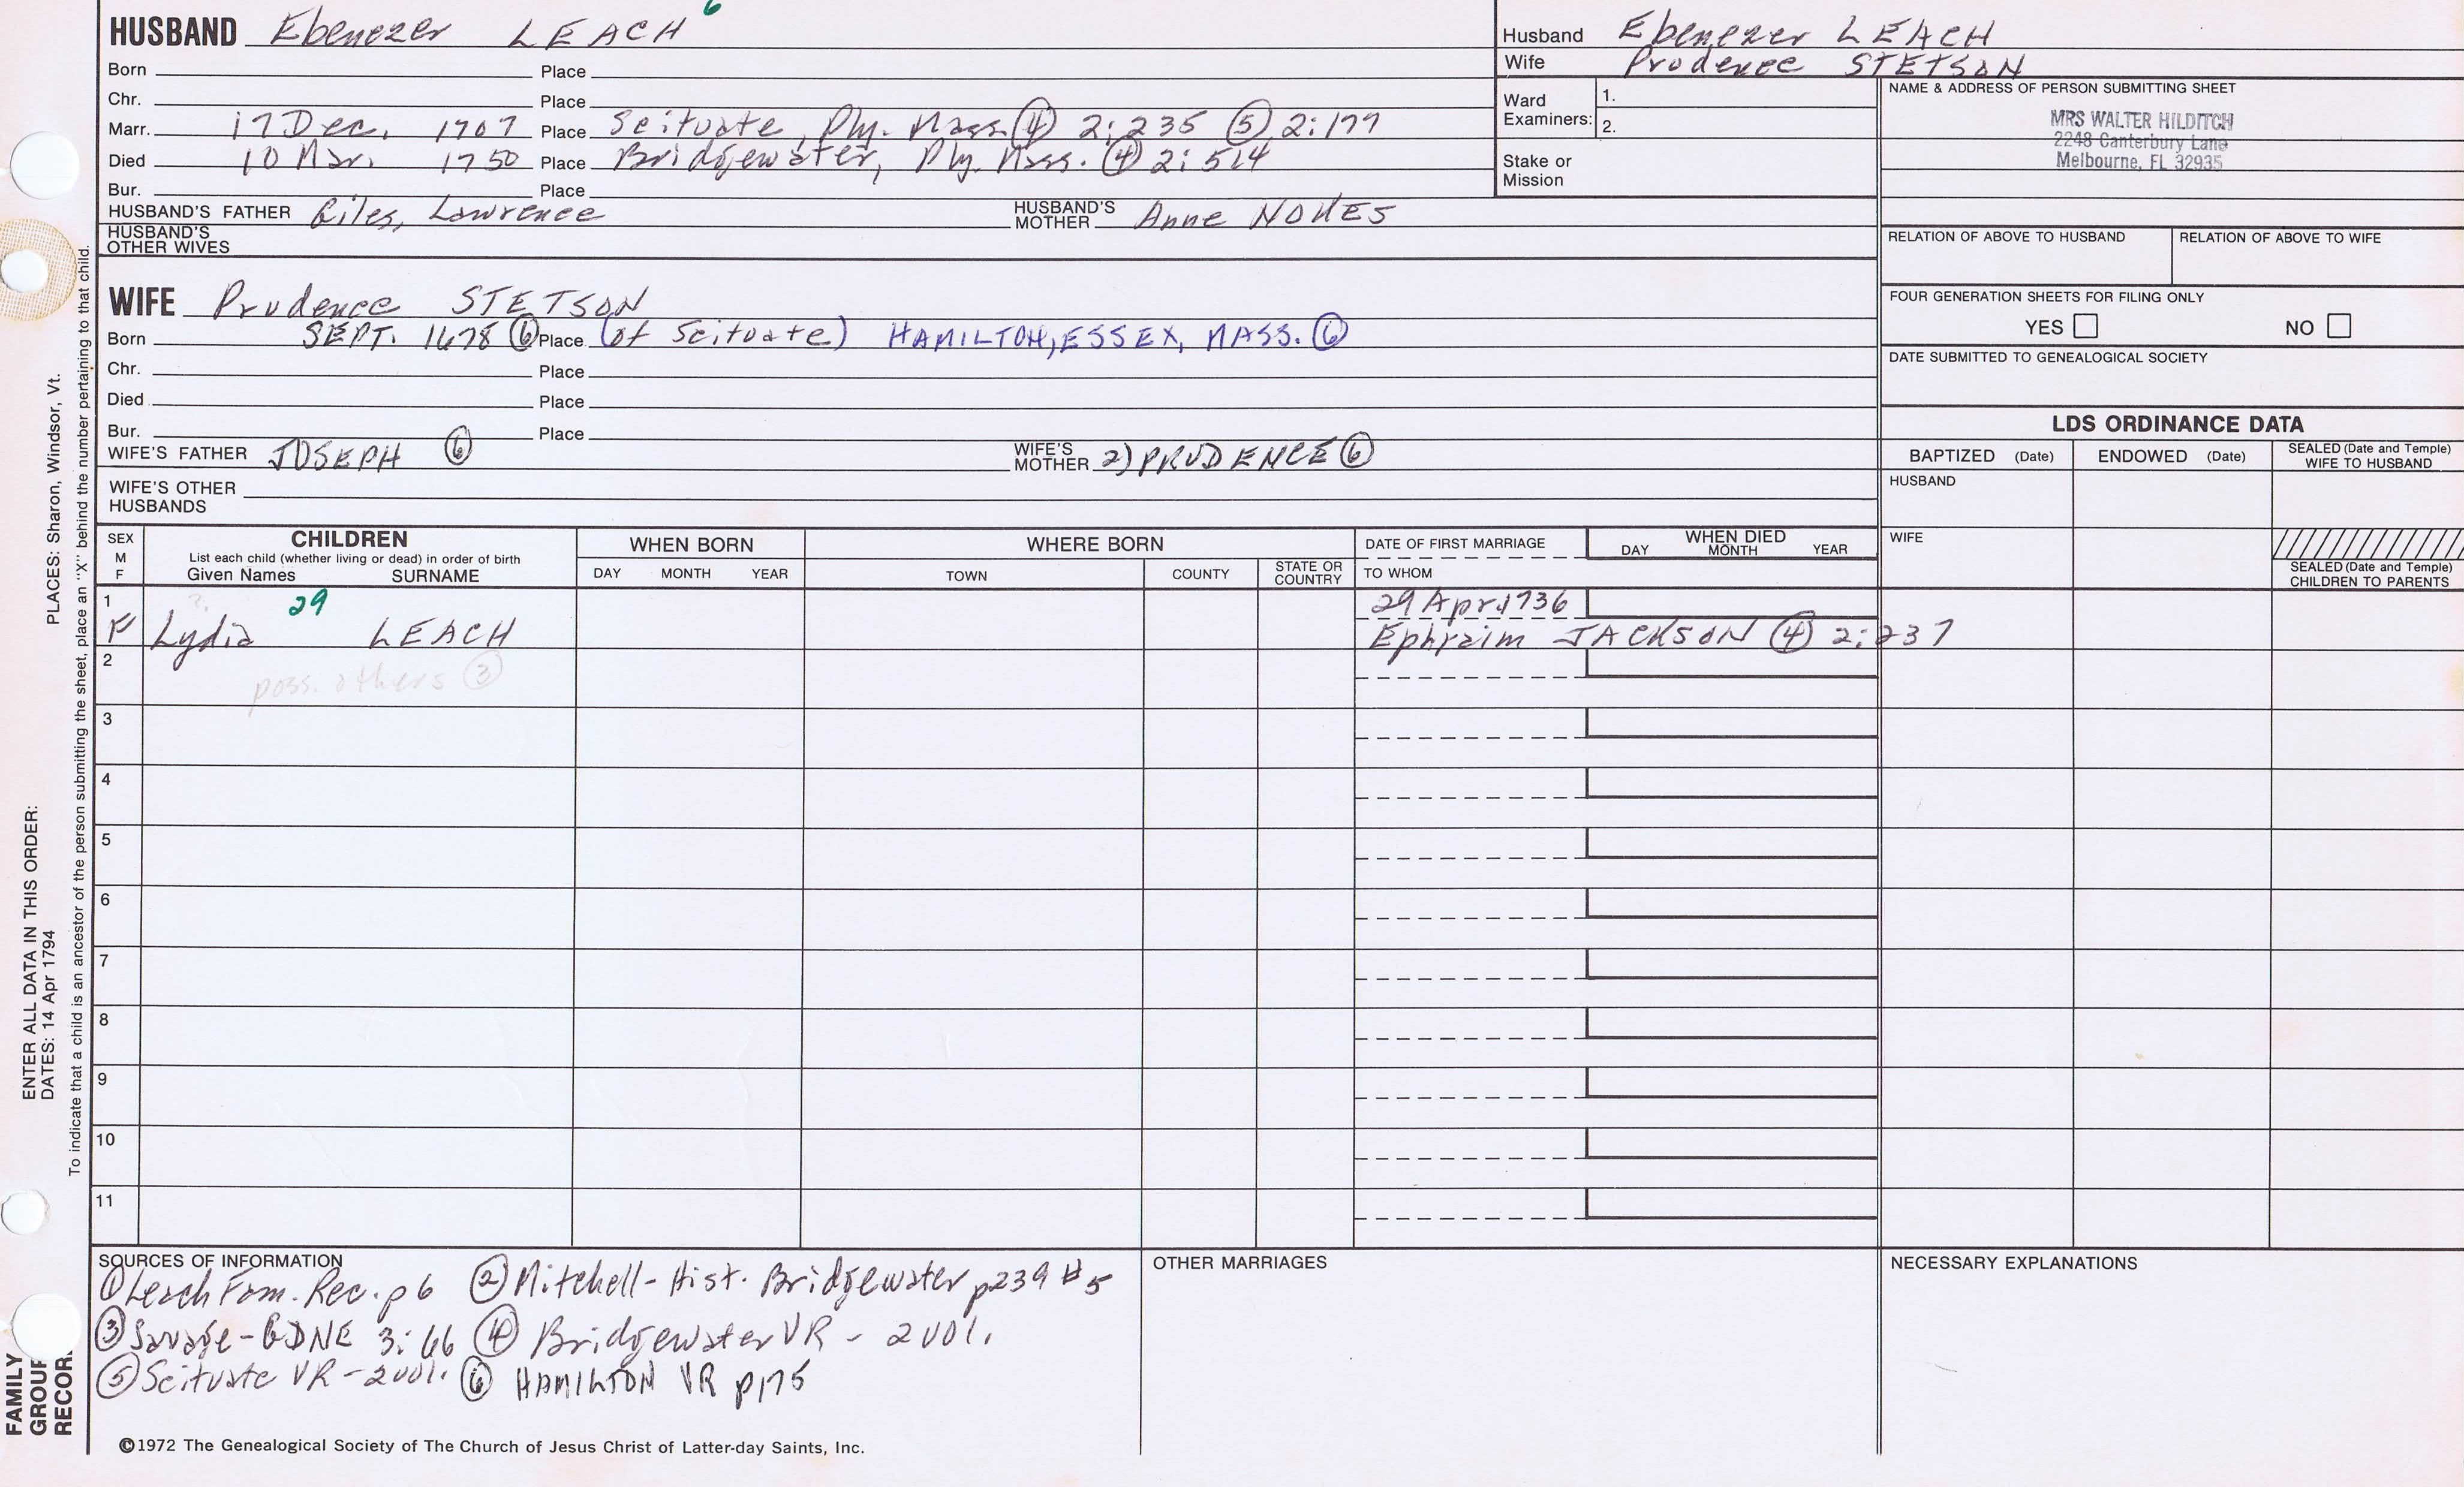 HUSBAND Ebenezer LEACH 6
Born Place
Chr. Place
Marr. 17 Dec. 1707 Place Scituate, Ply. Mass. ④ 2:235 ⑤ 2:177
Died 10 Mar. 1750 Place Bridgewater, Ply. Mass. ④ 2:514
Bur. Place
HUSBAND'S FATHER Giles, Lawrence HUSBAND'S MOTHER Anne NOKES
HUSBAND'S OTHER WIVES
Husband Ebenezer LEACH
Wife Prudence STETSON
Ward Examiners: 1.
2.
Stake or Mission
NAME & ADDRESS OF PERSON SUBMITTING SHEET
MRS WALTER HILDITCH
2248 Canterbury Lane
Melbourne, FL 32935
RELATION OF ABOVE TO HUSBAND RELATION OF ABOVE TO WIFE
FOUR GENERATION SHEETS FOR FILING ONLY
YES NO
DATE SUBMITTED TO GENEALOGICAL SOCIETY
WIFE Prudence STETSON
Born SEPT. 1678 ⑥ Place (of Scituate) HAMILTON, ESSEX, MASS. ⑥
Chr. Place
Died Place
Bur. Place
WIFE'S FATHER JOSEPH ⑥ WIFE'S MOTHER 2) PRUDENCE ⑥
WIFE'S OTHER HUSBANDS
LDS ORDINANCE DATA
BAPTIZED (Date) ENDOWED (Date) SEALED (Date and Temple) WIFE TO HUSBAND
HUSBAND
WIFE
SEALED (Date and Temple) CHILDREN TO PARENTS
SEX M F
CHILDREN
List each child (whether living or dead) in order of birth
Given Names SURNAME
WHEN BORN
DAY MONTH YEAR
WHERE BORN
TOWN COUNTY STATE OR COUNTRY
DATE OF FIRST MARRIAGE
TO WHOM
WHEN DIED
DAY MONTH YEAR
1 29 29 Apr. 1736
F Lydia LEACH Ephraim JACKSON ④ 2:237
2 poss. others ③
3
4
5
6
7
8
9
10
11
SOURCES OF INFORMATION
① Leach Fam. Rec. p 6 ② Mitchell - Hist. Bridgewater p239 #5
③ Savage - GDNE 3:66 ④ Bridgewater VR - 2 vol.
⑤ Scituate VR - 2 vol. ⑥ HAMILTON VR p175
OTHER MARRIAGES
NECESSARY EXPLANATIONS
©1972 The Genealogical Society of The Church of Jesus Christ of Latter-day Saints, Inc.
ENTER ALL DATA IN THIS ORDER:
DATES: 14 Apr 1794
PLACES: Sharon, Windsor, Vt.
To indicate that a child is an ancestor of the person submitting the sheet, place an "X" behind the number pertaining to that child.
FAMILY
GROUP
RECORD